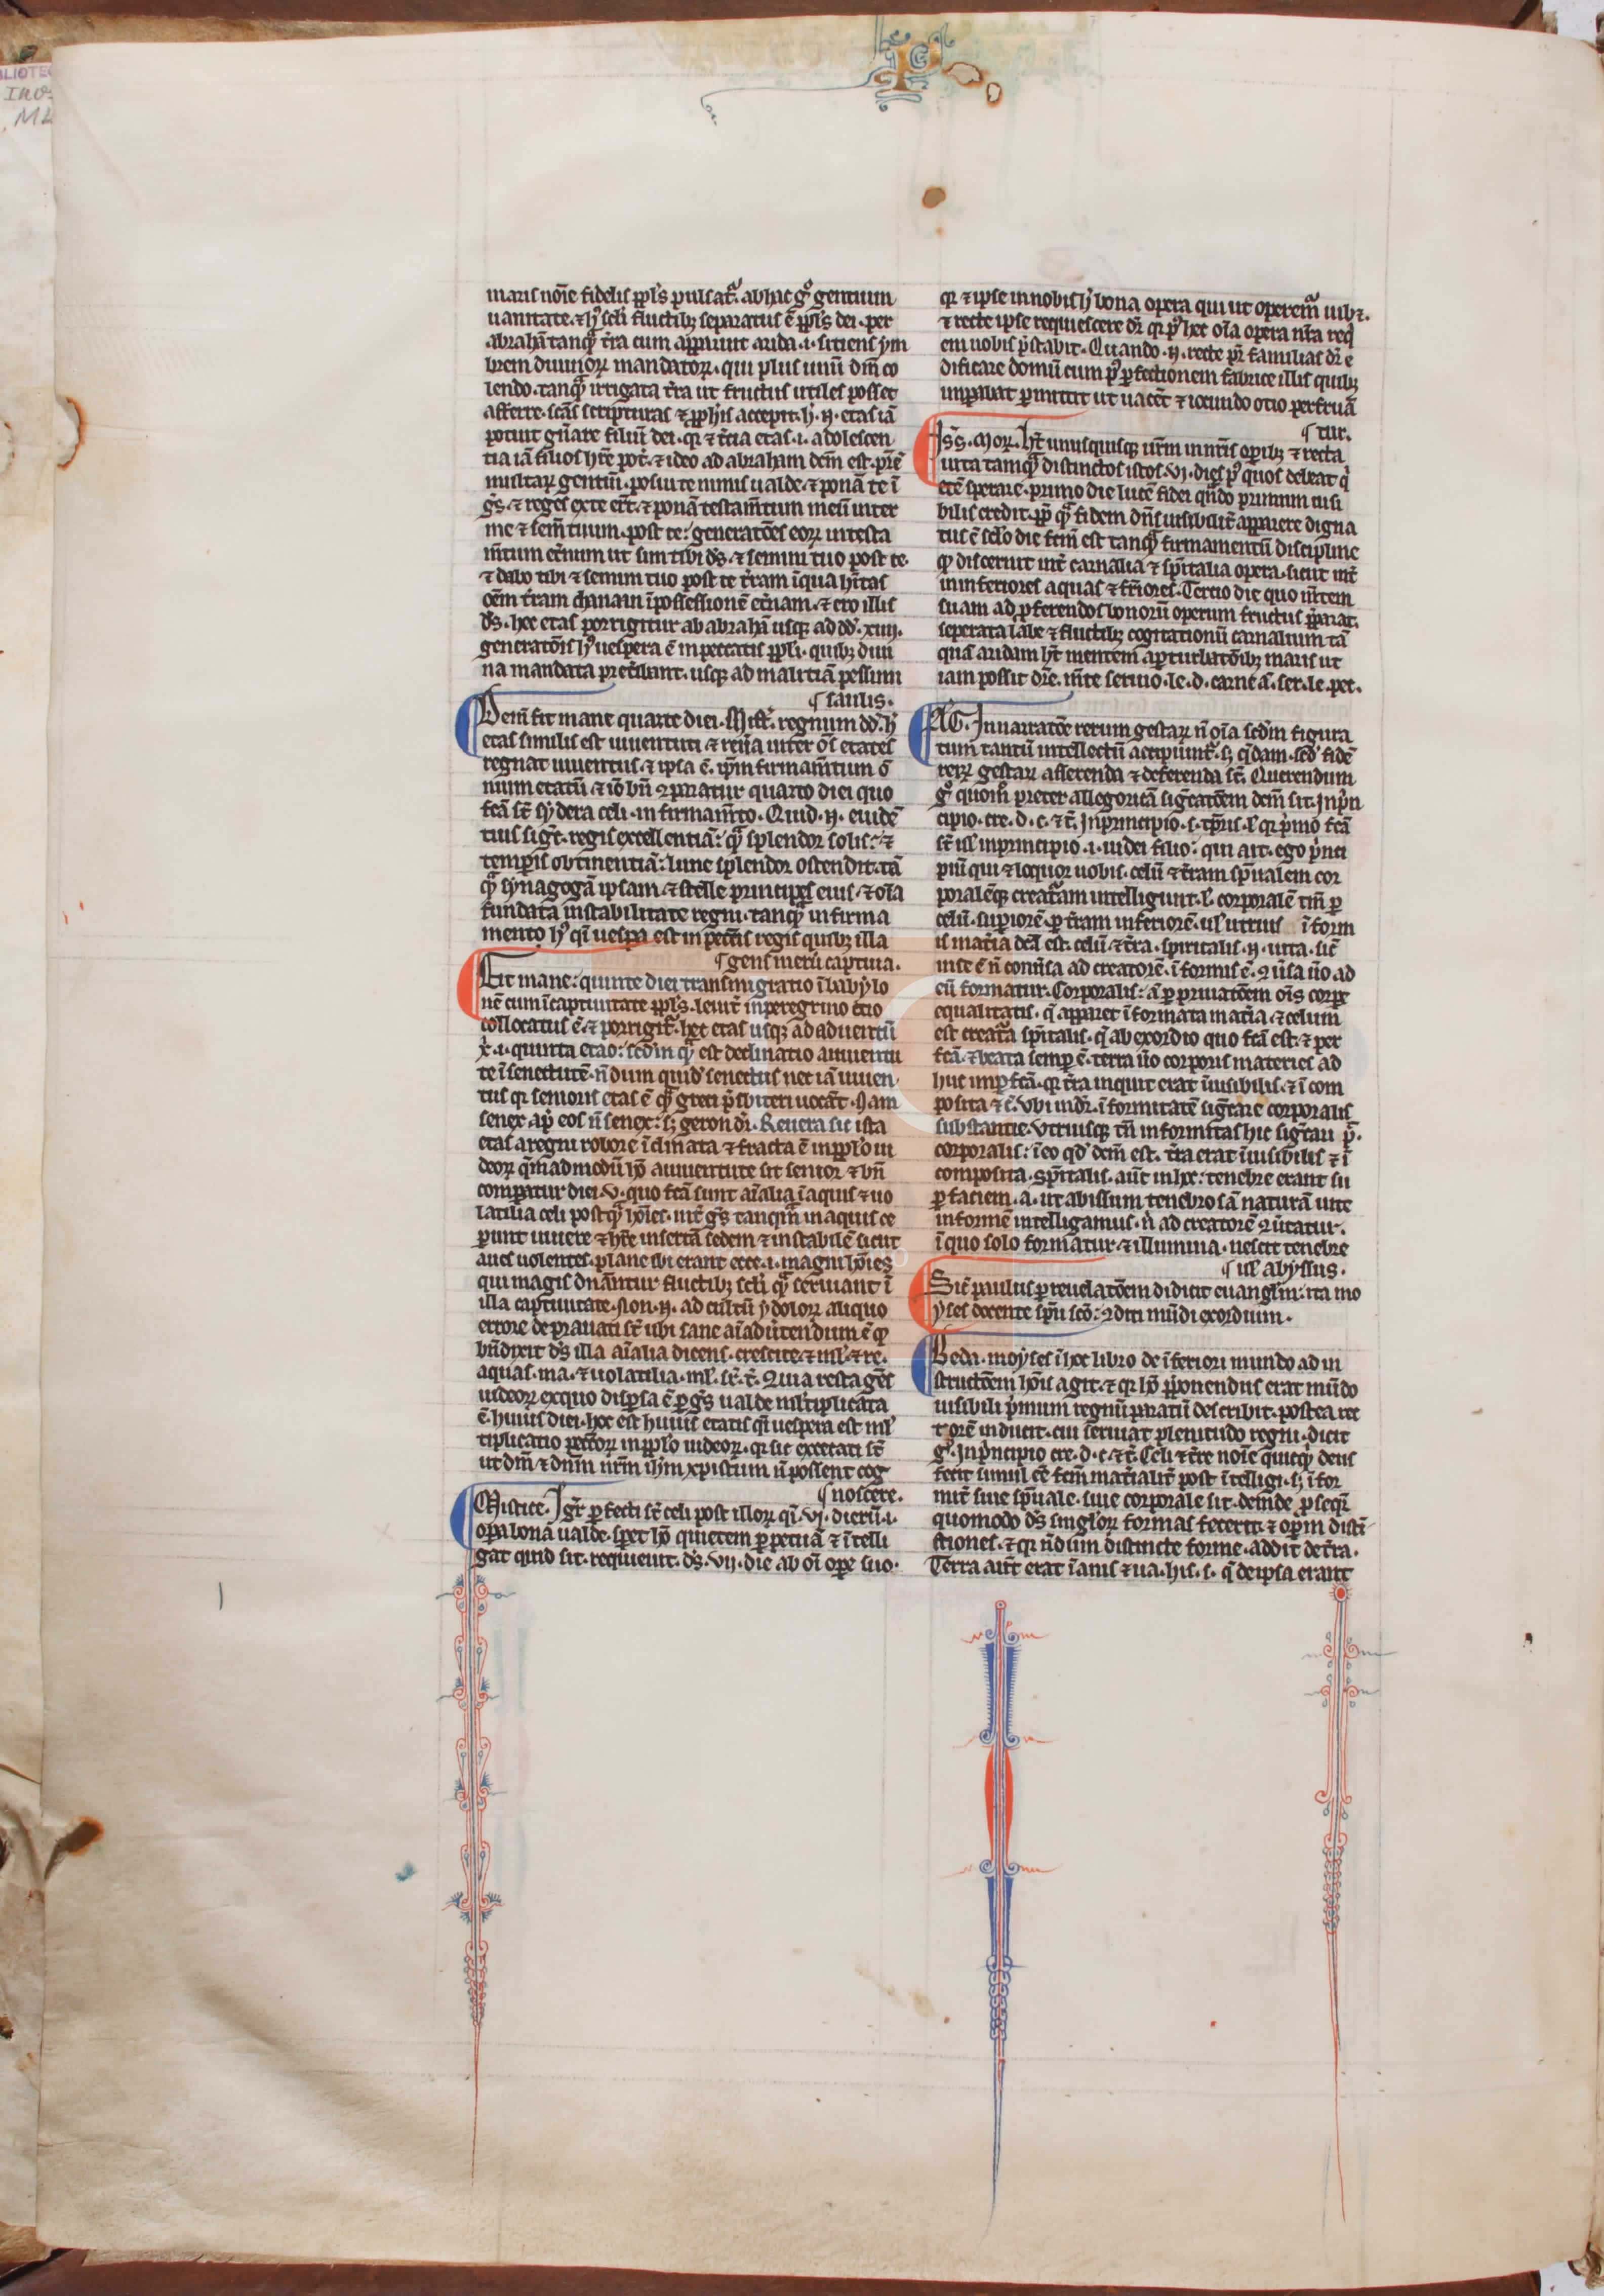 maris nōīe fidelis ppl's pulsat᷑. ab hac gͦ gentium
uanitate. ⁊ hꝰ scl'i fluctibꝫ separatus ē ppl's dei. per
abrahā tanqͣ t̄ra cum apparuit arida .i. sitiens ym
brem diuinoꝝ mandatoꝝ. qui plus unū dm̄ co
lendo. tanqͣ irrigata t̄ra ut fructus utiles posset
afferre. scās scripturas ⁊ pph'is accepit. h̄. n̄. etas iā
potuit gn̄are filiū dei. qr ⁊ t̄cia etas .i. adolescen
tia iā filios hr̄e pot̄. ⁊ ideo ad abraham dcm̄ est. pr̄ē
multaꝝ gentiū. posui te nimis ualde. ⁊ ponā te ī
gs̄. ⁊ reges ex te er̄t. ⁊ ponā testam̄tum meū inter
me ⁊ sem̄ tuum. post te: generatōēs eoꝝ in testa
m̄tum et̄num ut sim tibi ds̄. ⁊ semini tuo post te.
⁊ dabo tibi ⁊ semini tuo post te t̄ram ī qua hītas
oēm t̄ram chanaan ī possessionē et̄nam. ⁊ ero illis
ds̄. hec etas porrigitur ab abrahā usqꝫ ad dd̄. xiiij.
generatōīs hꝰ uespera ē in peccatis ppl'i. quibꝫ diui
na mandata pret̄ibant. usqꝫ ad malitiā pessimi
¶ saulis.
Dein̄ fit mane quarte diei. regnum dd̄. h̄
etas similis est iuuentuti ⁊ reūa inter ōs etates
regnat iuuentus. ⁊ ipsa ē. ip̄m firmam̄tum ō
nium etatū. ⁊ iō bn̄ ꝯparatur quarto diei quo
fcā st̄ sydera celi. in firmam̄to. Quid .n̄. euidē
tius siḡt. regis excellentiā: qͣ splendor solis: ⁊
temp̄is obtinentiā: lune splendor ostendit. tā
qͣ synagogā ipsam. ⁊ stelle principes eius. ⁊ oīa
fundata in stabilitate regni. tanqͣ in firma
mento hꝰ q̄i uesꝑa est in peccīs regis quibꝫ illa
¶ gens meru captiua.
Fit mane: quinte diei transmigratio ī babylo
nē cum ī captiuitate ppl's. leuit̄ in peregrino ōcio
collocatus ē. ⁊ porrigit᷑. hec etas usqꝫ ad aduentū
x̄. i. quinta etas: scd̄m qͣ est declinatio a iuuentu
te ī senectutē. n̄dum quid' senectus nec iā iuuen
tus qr senioris etas ē qͣ greci p̄sbiteri uocāt. Nam
senex aṗ eos n̄ senex: sꝫ geron dr̄. Reuera sic ista
etas a regni robore īclinata ⁊ fracta ē in ppl'o iu
deoꝝ qm̄admodū hō a iuuentute fit senior ⁊ bn̄
comparatur diei .v. quo fcā sunt aīalia ī aquis ⁊ uo
latilia celi postqͣ hōīes. int̄ gs̄ tanqͣm in aquis ce
ꝑunt uiuere ⁊ hr̄e incertā sedem ⁊ instabilē sicut
aues uolentes. plane ibi erant cete. i. magni hōīes
qui magis dn̄antur fluctibꝫ scl'i qͣ seruiant ī
illa captiuitate. Non .n̄. ad cultū ydoloꝝ aliquo
errore deprauati st̄ ubi sane aīaduertendum ē qꝫ
bn̄dixit ds̄ illa aīalia dicens. crescite. ⁊ ml'. ⁊ re.
aquas. ma. ⁊ uolatilia. ml'. st̄. t̄. Quia resta gēs
iudeoꝝ ex quo dispersa ē ꝑ gs̄ ualde ml'tiplicata
ē. huius diei. hoc est huius etatis q̄i uespera est ml'
tiplicatio pecc̄oꝝ in ppl'o iudeoꝝ. qr sic excecati st̄
ut dm̄ ⁊ dn̄m nr̄m ih̄m xpistum n̄ possent cog
¶ noscere.
Mistice. Igr̄ ꝑfecti st̄ celi post illoꝝ q̄i. vj. dierū .i.
oꝑa bona ualde. speret hō quietem ꝑpetuā ⁊ ītelli
gat quid sit. requieuit. ds̄. vij. die ab oī oꝑe suo.
qr ⁊ ipse in nobis hꝰ bona opera qui ut operemᷣ iubꝫ.
⁊ recte ipse requiescere dr̄ qr pꝰ hec oīa opera nr̄a req
em nobis p̄stabit. Quando .n̄. recte pr̄ familias dr̄ e
dificare domū cum pꝰ ꝑfectionem fabrice illis quibꝫ
imperabat ꝑmittit ut uacēt ⁊ iocundo otio perfruā
¶ tur.
Iss̄. Moꝝ. Ht̄ unusquisqꝫ ur̄m in nr̄is oꝑibꝫ ⁊ recta
uita tamqͣ distinctos istos .vj. dies pꝰ quos debeat q̇
etē sperare. primo die lucē fidei qn̄do primum uisi
bilis credit. ꝓp qͣ fidem dn̄s uisibilit̄ apparere digna
tus ē scd̄o die fcm̄ est tanqͣ firmamentū discipline
qꝫ discernit int̄ carnalia ⁊ sp̄italia opera. sicut int̄
in inferiores aquas ⁊ t̄riores. Tercio die quo m̄tem
suam ad ꝑferendos bonorū operum fructus p̄parat.
seperata labe ⁊ fluctibꝫ cogitationū carnalium tā
quā aridam ht̄ mentem a ꝑturbatōībꝫ maris ut
iam possit dr̄e. m̄te seruio. le. d. carne ā. ser. le. pec.
AG. In narratōē rerum gestaꝝ n̄ oīa scd̄m figura
tum tantū intellectū accipiunt᷑. sꝫ q̄dam. scd̄ fidē
rerꝝ gestaꝝ afferenda ⁊ deferenda st̄. Querendum
gͦ quom̄ preter allegoricā siḡcatōēm dcm̄ sit. In pͥn
cipio. cre. d. c. ⁊ t̄. In principio. s. tp̄ris. l' qr pͥmo fcā
st̄ ul' in principio .i. in dei filio: qui ait. ego pͥnci
piū qui ⁊ loquor uobis. celū ⁊ t̄ram sp̄ualem cor
poralēqꝫ creatuͣam intelligunt. l' corporalē tm̄ ꝑ
celū. suꝑiorē. ꝑ t̄ram inferiorē. ul' utrius īform
is mat̄ia dcā est. celū. ⁊ t̄ra. spiritalis .n̄. uita. sic̄
in se ē n̄ conūsa ad creatorē. ī formis ē. ꝯ ūsa ūo ad
eū formatur. Corporalis: ā ꝑ priuatōēm oīs corpē
equalitatis. q̄ apparet ī formata mat̄ia. ⁊ celum
est creatᷓa sp̄italis. q̄ ab exordio quo fcā est. ⁊ per
fcā. ⁊ beata semꝑ ē. terra ūo corporis materies ad
huc imꝑfcā. qr t̄ra inquit erat īuisibilis. ⁊ ī com
posita ⁊ c̄. Vbi uidr̄. ī formitatē siḡcare corporalis
substantie. Vtriusqꝫ tn̄ informitas hic siḡcari pͦ.
corporalis: ī eo qd' dcm̄ est. t̄ra erat īuisibilis ⁊ ī
composita. sp̄italis. aūt in hoc: tenebre erant su
ꝑ faciem. a. ut abissum tenebrosā naturā uite
in formē intelligamus. n̄ ad creatorē ꝯūtatur.
ī quo solo formatur ⁊ illumina. nescit tenebre
¶ ul' abyssus.
Sic̄ paulus ꝑ reuelatōēm didicit euangl'm: ita mo
yses docente sp̄u scō: ꝯditi mūdi exordium.
Beda. moyses ī hoc libro de īferiori mundo ad in
structōēm hōīs agit. ⁊ qr hō p̄ponendus erat mūdo
uisibili pͥmum regnū paratū describit. postea rec
torē inducit. cui seruiat plenitudo regni. dicit
gͦ. In pͥncipio cre. d. c. ⁊ t̄. Celi ⁊ t̄re nōīe quicqͥd deus
fecit simul ēē fcm̄ mat̄ialit̄ post ītelligi. sꝫ ī for
mit̄ siue sp̄uale. siue corporale sit. deinde ꝓseqͥ
quomodo ds̄ singl'oꝝ formas fecerit. ⁊ oꝑm disti
nctiones. ⁊ qr n̄dum distincte forme. addit de t̄ra.
Terra aūt erat īanis ⁊ ua. his .s. q̄ de ipsa erant